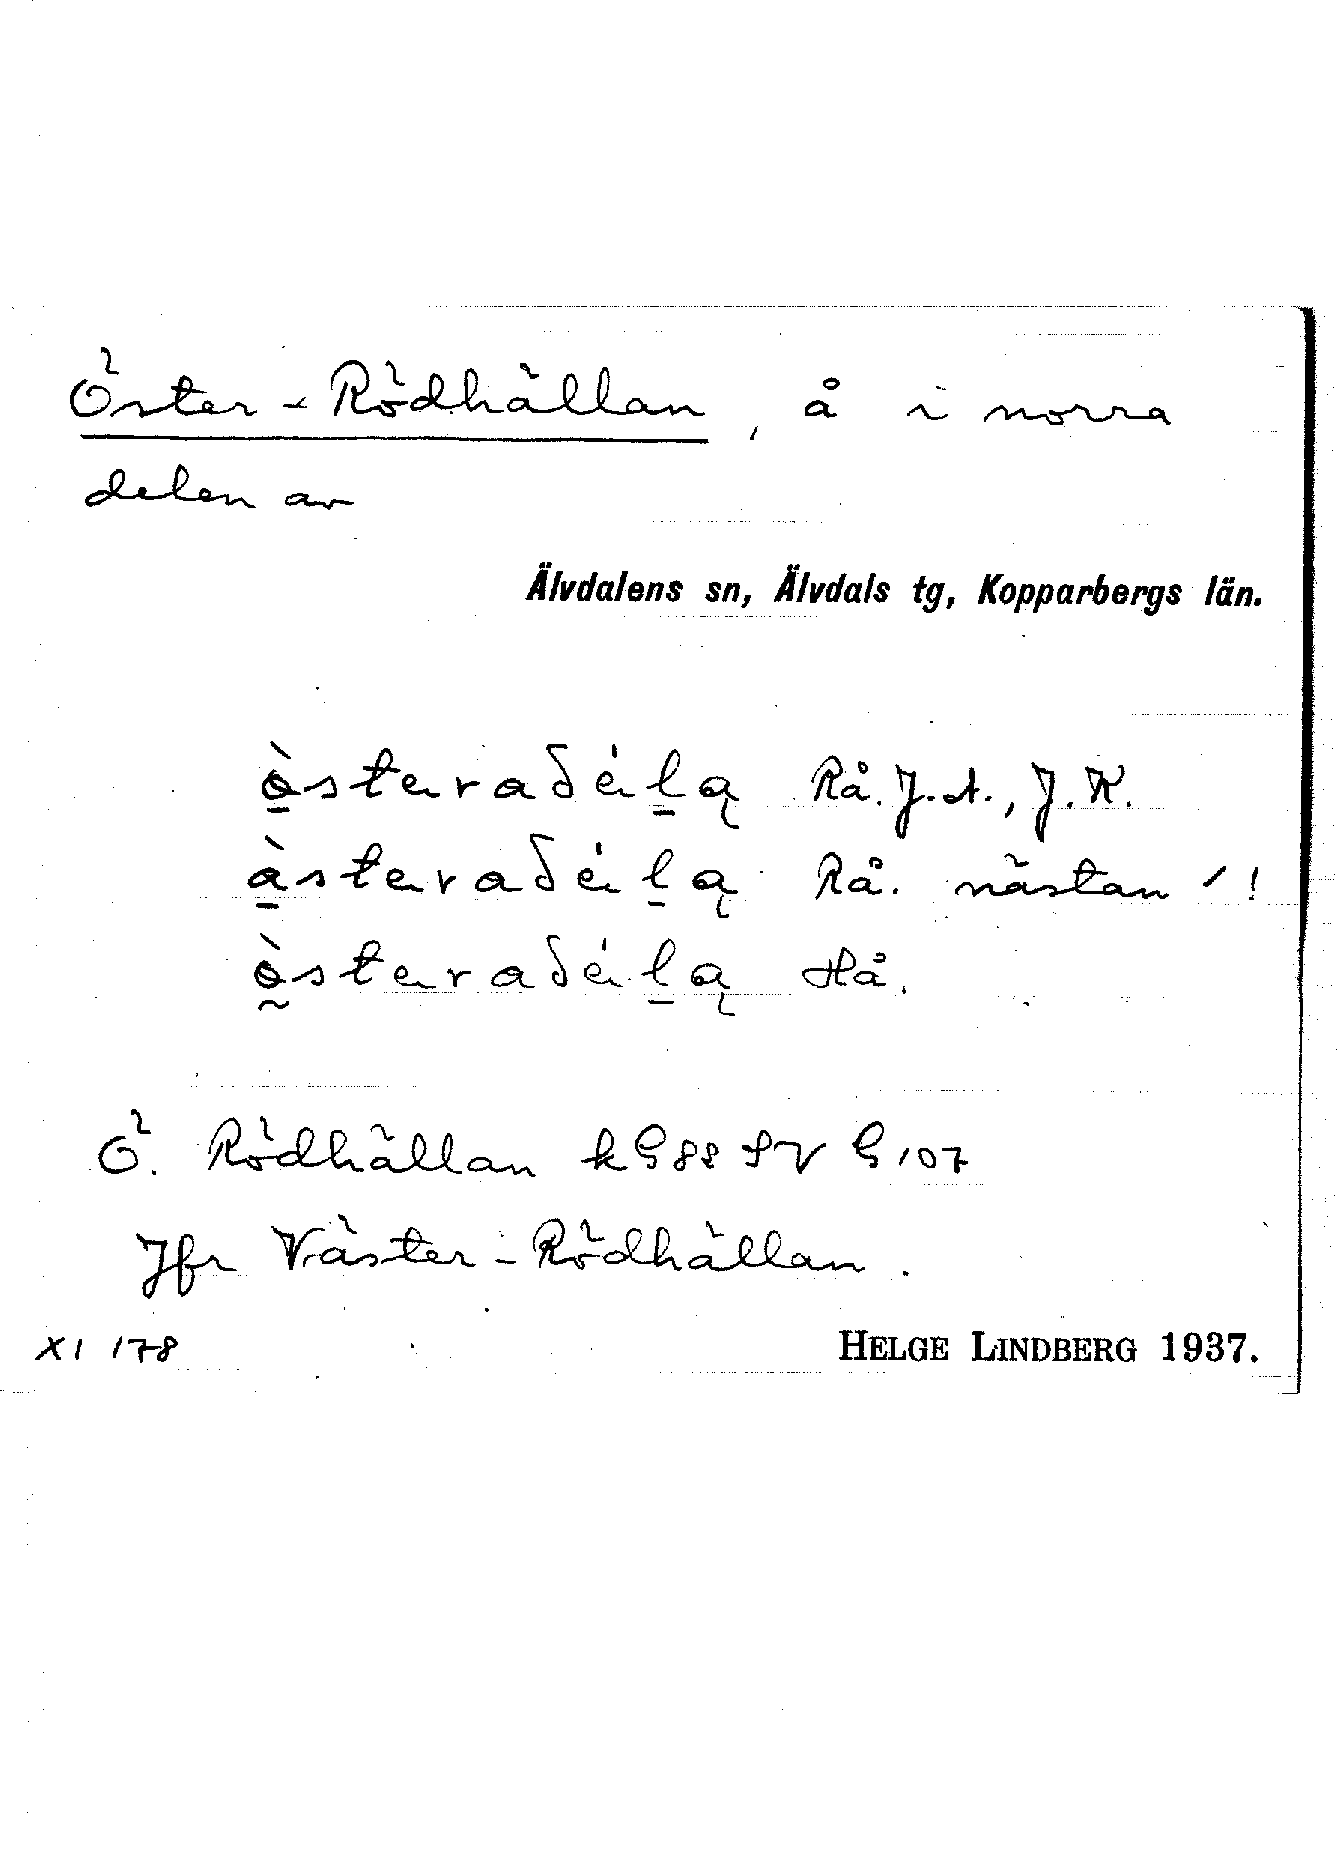 Öster-Rödhällan, å i norra
delen av
Älvdalens sn, Älvdals tg, Kopparbergs län.
Rå. J.A., J.K.
Rå. nästan ´ !
Hå.
Ö. Rödhällan k G 88 SV G 107
Jfr Väster-Rödhällan.
XI 178
HELGE LINDBERG 1937.